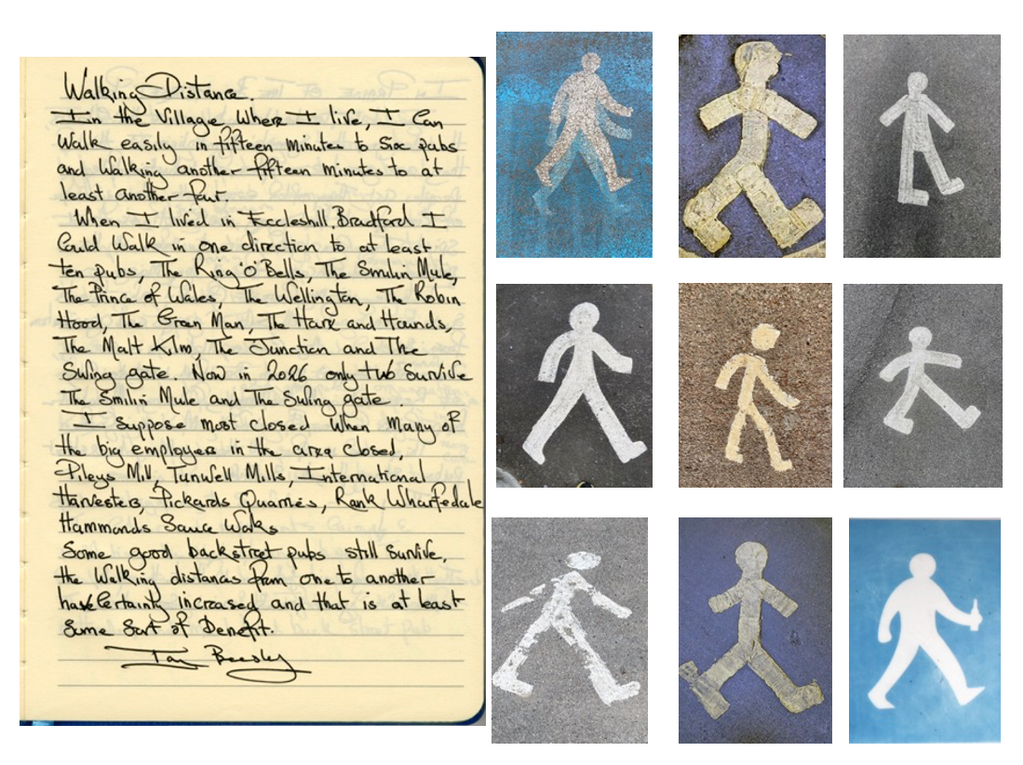 Walking Distance.
In the Village Where I live, I Can
Walk easily in fifteen minutes to Six pubs
and Walking another fifteen minutes to at
least another four.
When I lived in Eccleshill, Bradford I
Could Walk in one direction to at least
ten pubs, The Ring 'o' Bells, The Smilin Mule,
The Prince of Wales, The Wellington, The Robin
Hood, The Green Man, The Hare and Hounds,
The Malt Kiln, The Junction and The
Swing gate. Now in 2026 only two Survive
The Smilin Mule and The Swing gate.
I Suppose most closed when many of
the big employers in the area closed,
Pileys Mill, Tunwell Mills, International
Harvesters, Pickards Quarries, Rank Wharfedale
Hammonds Sauce Works
Some good backstreet pubs still Survive,
the Walking distances from one to another
have Certainly increased and that is at least
Some Sort of Benefit.
Ian Beesley